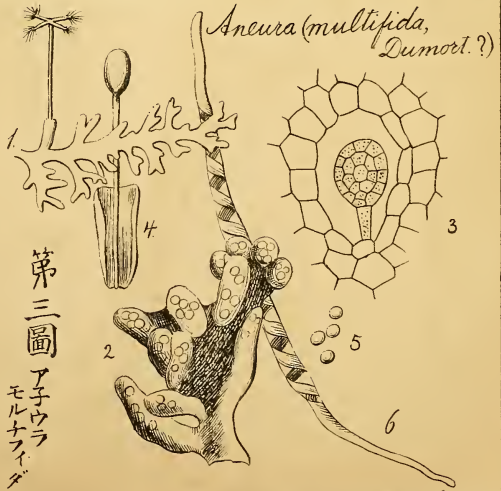 Aneura (multifida,
Dumort. ?)
1.
2
3
4.
5
6
第三圖
アネウラ
モルチフィダ